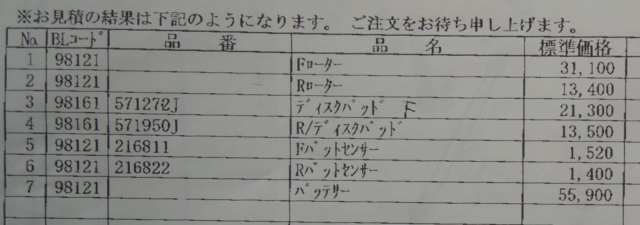 ※お見積の結果は下記のようになります。 ご注文をお待ち申し上げます。
No. BLコード 品 番 品 名 標準価格
1 98121 Fローター 31,100
2 98121 Rローター 13,400
3 98161 571272J ディスクパッド F 21,300
4 98161 571950J R/ディスクパッド 13,500
5 98121 216811 Fパットセンサー 1,520
6 98121 216822 Rパットセンサー 1,400
7 98121 バッテリー 55,900